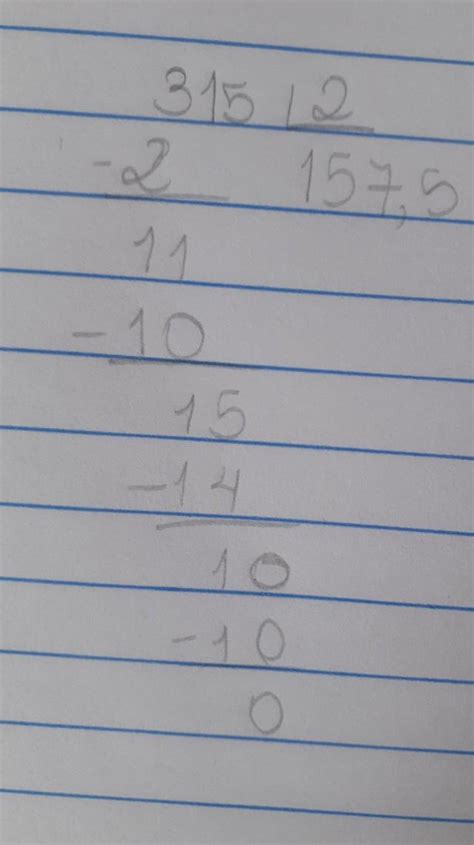 315 | 2
-2 157,5
11
-10
15
-14
10
-10
0